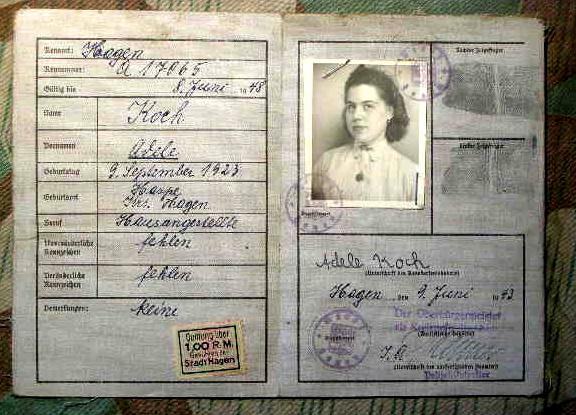 Kennort: Hagen
Kennummer: A 17065
Gültig bis 8. Juni 1948
Name Koch
Vornamen Adele
Geburtstag 9. September 1923
Geburtsort Haspe
Krs. Hagen
Beruf Hausangestellte
Unveränderliche Kennzeichen fehlen
Veränderliche Kennzeichen fehlen
Bemerkungen: keine
Quittung über
1,00 R.M.
Gebühren der
Stadt Hagen
Rechter Zeigefinger
Linker Zeigefinger
Adele Koch
(Unterschrift des Kennkarteninhabers)
Hagen, den 9. Juni 1943
Der Oberbürgermeister
(Ausstellende Behörde)
(Unterschrift des ausfertigenden Beamten)